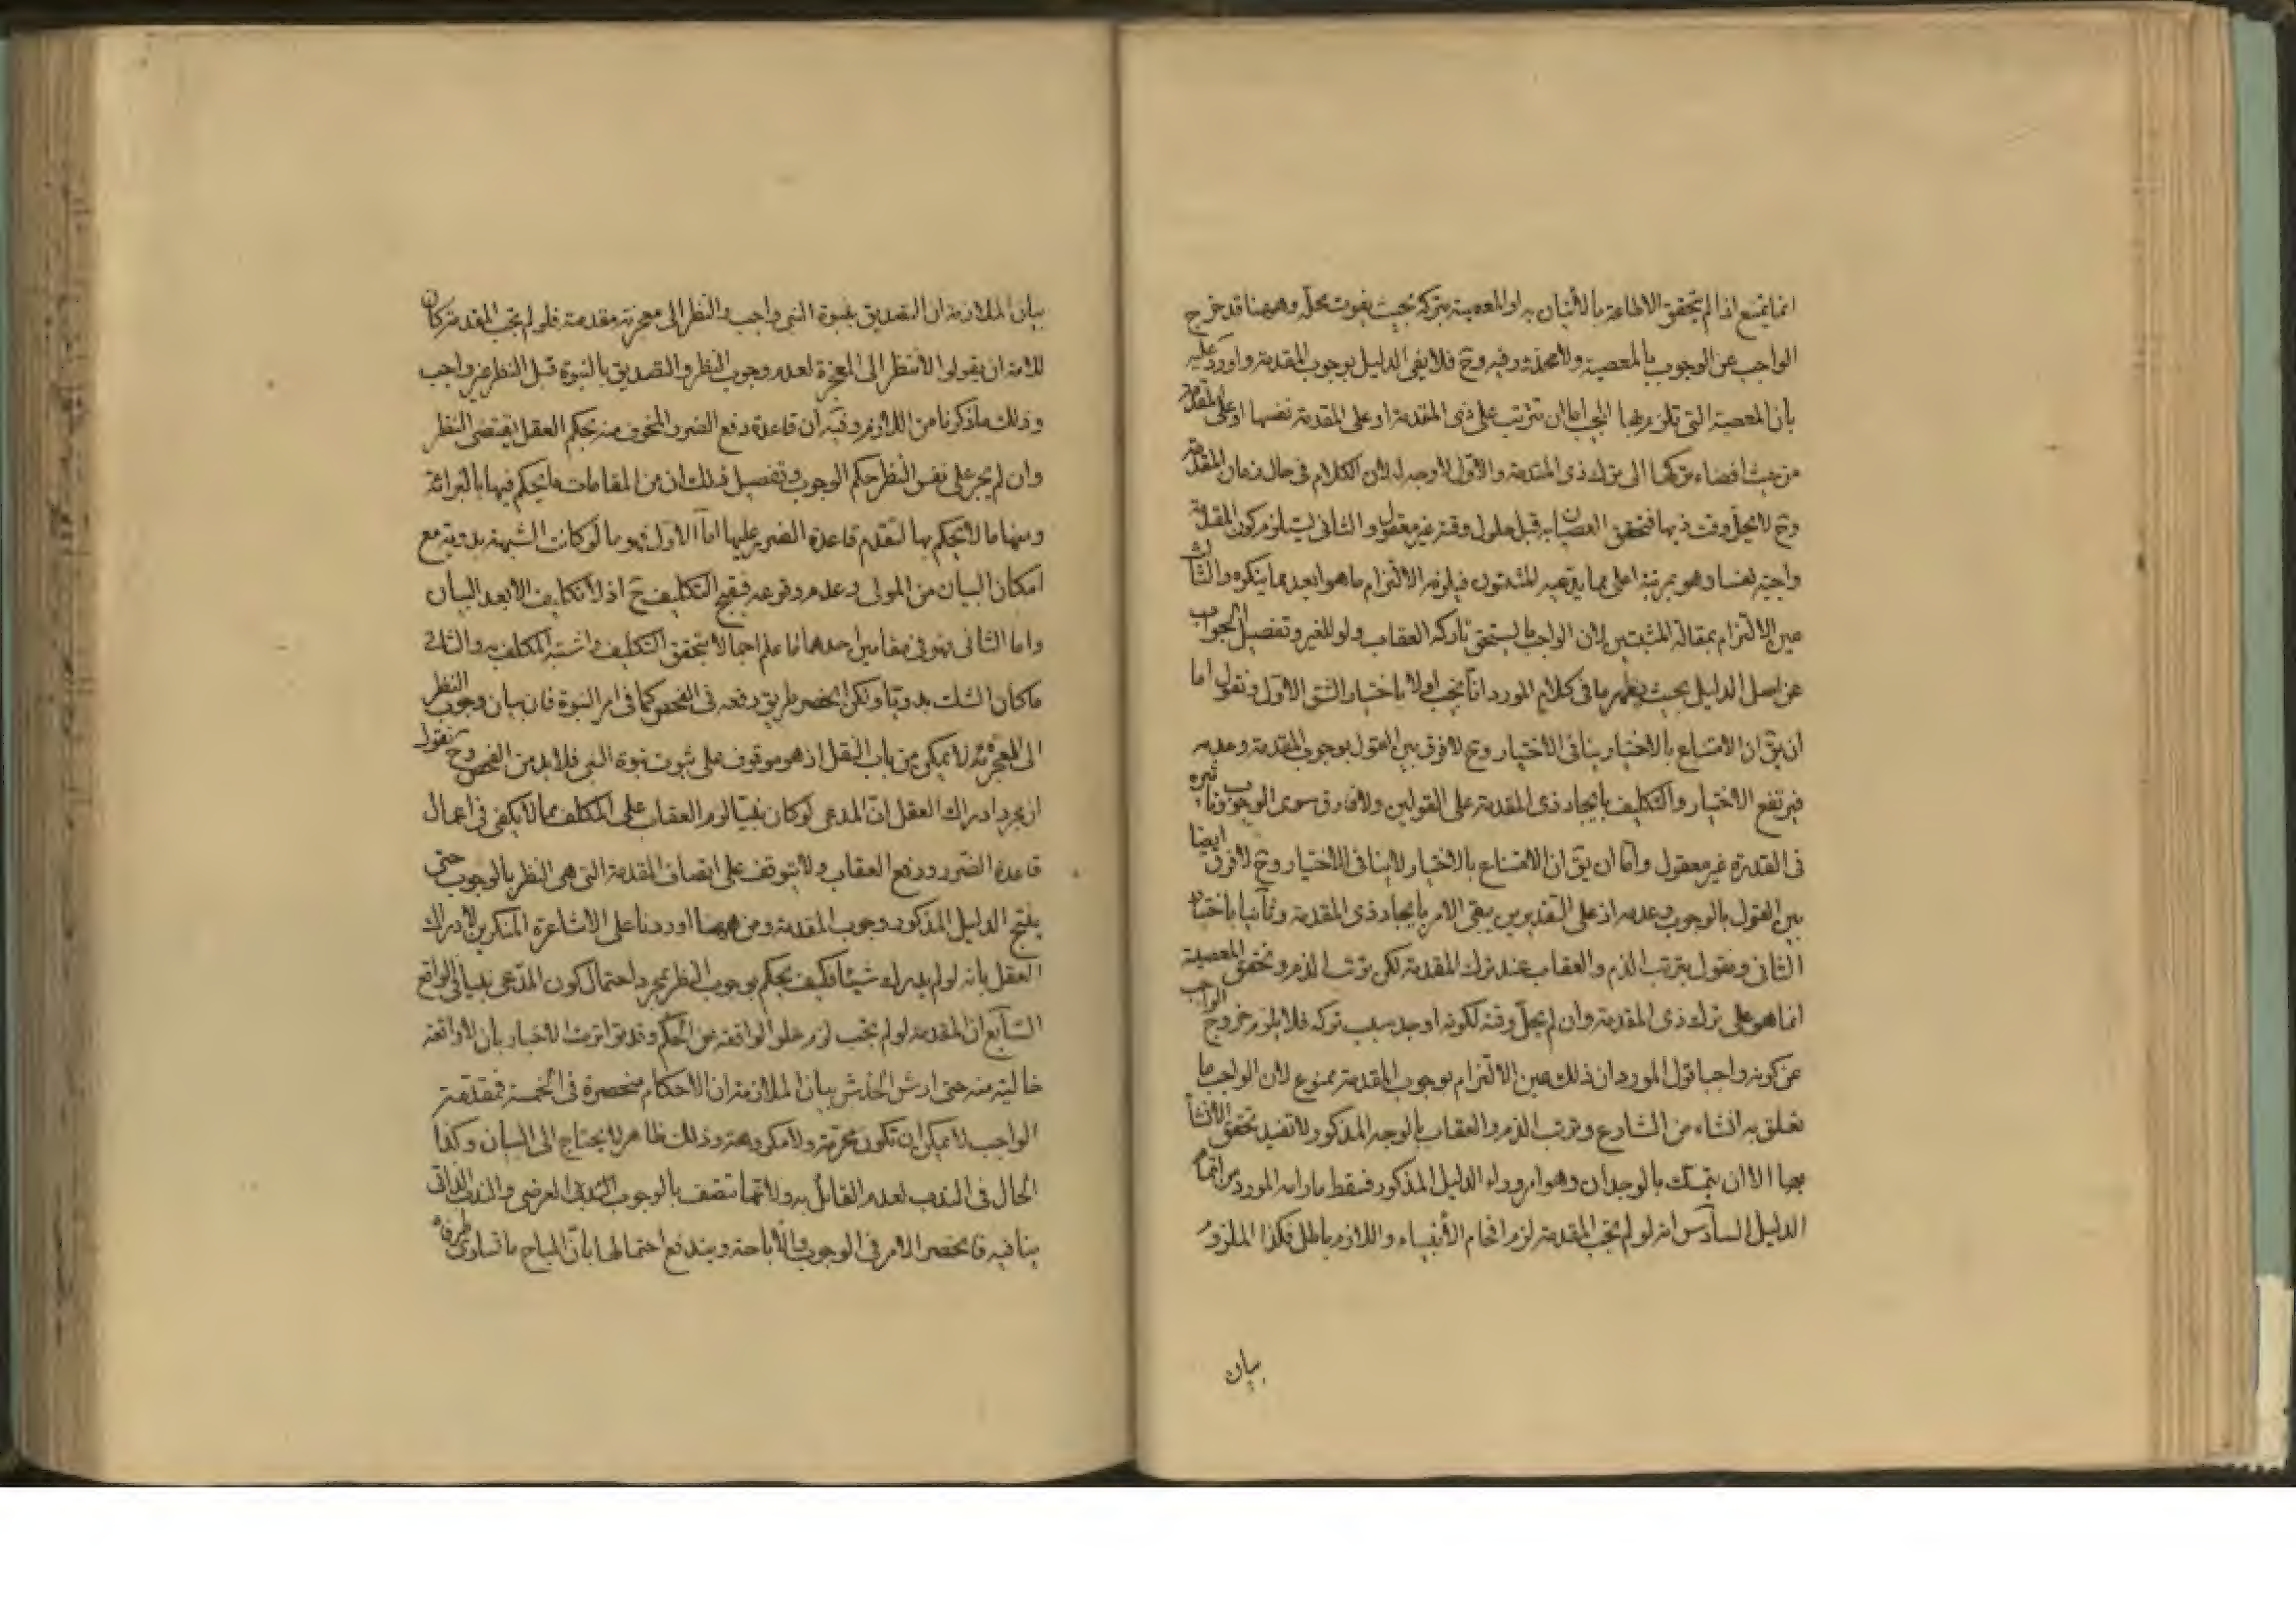 انما يمتنع اذا لم يتحقق الاطاعة بالاتيان به او المعصية بتركه بحيث يفوت محله وههنا قد خرج
الواجب عن الوجوب بالمعصية ولا محذور فيه وح فلا يفى الدليل بوجوب المقدمة واورد عليه
بان المعصية التى تلزم بها اما ان تترتب على ذى المقدمة او على المقدمة نفسها او على المقدمة
من حيث افضاء تركها الى ترك ذى المقدمة والاول لا وجه له لان الكلام فى حال زمان المقدمة
وح لا يحل وقت ذيها فتحقق العصيان به قبل حلول وقته غير معقول والثانى يستلزم كون المقدمة
واجبة لنفسها وهو بمرتبة اعلى مما يدعيه المثبتون فيلزمه الالتزام ما هو ابعد مما ينكره والثالث
عين الالتزام بمقالة المثبتين لان الواجب ما يستحق تاركه العقاب ولو للغير وتفصيل الجواب
عن اصل الدليل بحيث يظهر ما فى كلام المورد انا نجيب اولا باختيار الشق الاول ونقول اما
ان يق ان الامتناع بالاختيار ينافى الاختيار وح لا فرق بين القول بوجوب المقدمة وعدمه
فيرتفع الاختيار والتكليف بايجاد ذى المقدمة على القولين ولا فارق سوى الوجوب وتاثيره
فى القدرة غير معقول واما ان يق ان الامتناع بالاختيار لا ينافى الاختيار وح لا فرق ايضا
بين القول بالوجوب وعدمه اذ على التقديرين يبقى الامر بايجاد ذى المقدمة وثانيا باختيار
الثانى ونقول بترتب الذم والعقاب عند ترك المقدمة لكن ترتب الذم وتحقق المعصية
انما هو على ترك ذى المقدمة وان لم يحل وقته لكونه اوجد سبب تركه فلا يلزم خروج الواجب
عن كونه واجبا قول المورد ان ذلك عين الالتزام بوجوب المقدمة ممنوع لان الواجب ما
تعلق به انشاء من الشارع وترتب الذم والعقاب بالوجه المذكور لا تفيد تحقق الانشاء
بها الا ان يتمسك بالوجدان وهو امر وراء الدليل المذكور فسقط ما رامه المورد من اتمام
الدليل السادس انه لو لم تجب المقدمة لزم افحام الانبياء واللازم باطل فكذا الملزوم
بيان
بيان الملازمة ان التصديق بنبوة النبى واجب والنظر الى معجزته مقدمة فلو لم تجب المقدمة كان
للامة ان يقولوا لا ننظر الى المعجزة لعدم وجوب النظر والتصديق بالنبوة قبل النظر غير واجب
وذلك ما ذكرنا من اللازم وفيه ان قاعدة دفع الضرر المخوف منه بحكم العقل يقتضى النظر
وان لم يجر على نفس النظر حكم الوجوب وتفصيل ذلك ان من المقامات ما يحكم فيها بالبرائة
ومنها ما لا يحكم بها لتقدم قاعدة الضرر عليها اما الاول فهو ما لو كانت الشبهة بدوية مع
امكان البيان من المولى وعدم وقوعه فيقبح التكليف ح اذ لا تكليف الا بعد البيان
واما الثانى فهو فى مقامين احدهما ما علم اجمالا بتحقق التكليف واشتبه المكلف به والثانى
ما كان الشك بدويا ولكن انحصر طريق رفعه فى الفحص كما فى امر النبوة فان بيان وجوب النظر
الى المعجزة لا يمكن من باب النقل اذ هو موقوف على ثبوت نبوة النبى فلا بد من الفحص وح نقول
ان مجرد ادراك العقل ان المدعى لو كان نبيا لزم العقاب على المكلف مما لا يكفى فى اعمال
قاعدة الضرر ودفع العقاب ولا يتوقف على اتصاف المقدمة التى هى النظر بالوجوب حتى
ينتج الدليل المذكور وجوب المقدمة ومن ههنا اوردنا على الاشاعرة المنكرين لادراك
العقل بانه لو لم يدرك شيئا فكيف يحكم بوجوب النظر بمجرد احتمال كون المدعى نبيا فى الواقع
السابع ان المقدمة لو لم تجب لزم خلو الواقعة من الحكم وقد تواترت الاخبار بان لا واقعة
خالية منه حتى ارش الخدش بيان الملازمة ان الاحكام منحصرة فى الخمسة فمقدمة
الواجب لا يمكن ان تكون محرمة ولا مكروهة وذلك ظاهر لا يحتاج الى البيان وكذا
الحال فى الندب لعدم القائل به ولانها تتصف بالوجوب العرضى والندب الذاتى
ينافيه فانحصر الامر فى الوجوب والاباحة ويندفع احتمالها بان المباح ما تساوى طرفاه